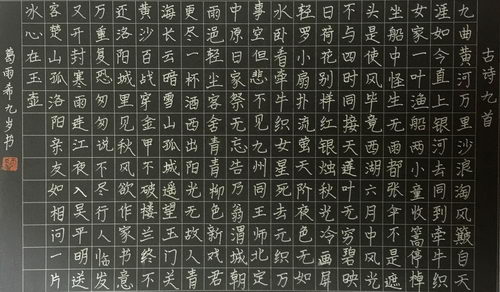 古诗九首
九曲黄河万里沙浪淘风簸自天
涯如今直上银河去同到牵牛织
女家一叶渔船两小童收篙停棹
坐船中怪生无雨都张伞不是遮
头是使风毕竟西湖六月中风光
不与四时同接天莲叶无穷碧映
日荷花别样红银烛秋光冷画屏
轻罗小扇扑流萤天阶夜色凉如
水卧看牵牛织女星死去元知万
事空但悲不见九州同王师北定
中原日家祭无忘告乃翁渭城朝
雨浥轻尘客舍青青柳色新劝君
更尽一杯酒西出阳关无故人青
海长云暗雪山孤城遥望玉门关
黄沙百战穿金甲不破楼兰终不
还洛阳城里见秋风欲作家书意
万重复恐匆匆说不尽行人临发
又开封寒雨连江夜入吴平明送
客楚山孤洛阳亲友如相问一片
冰心在玉壶
葛雨希九岁书